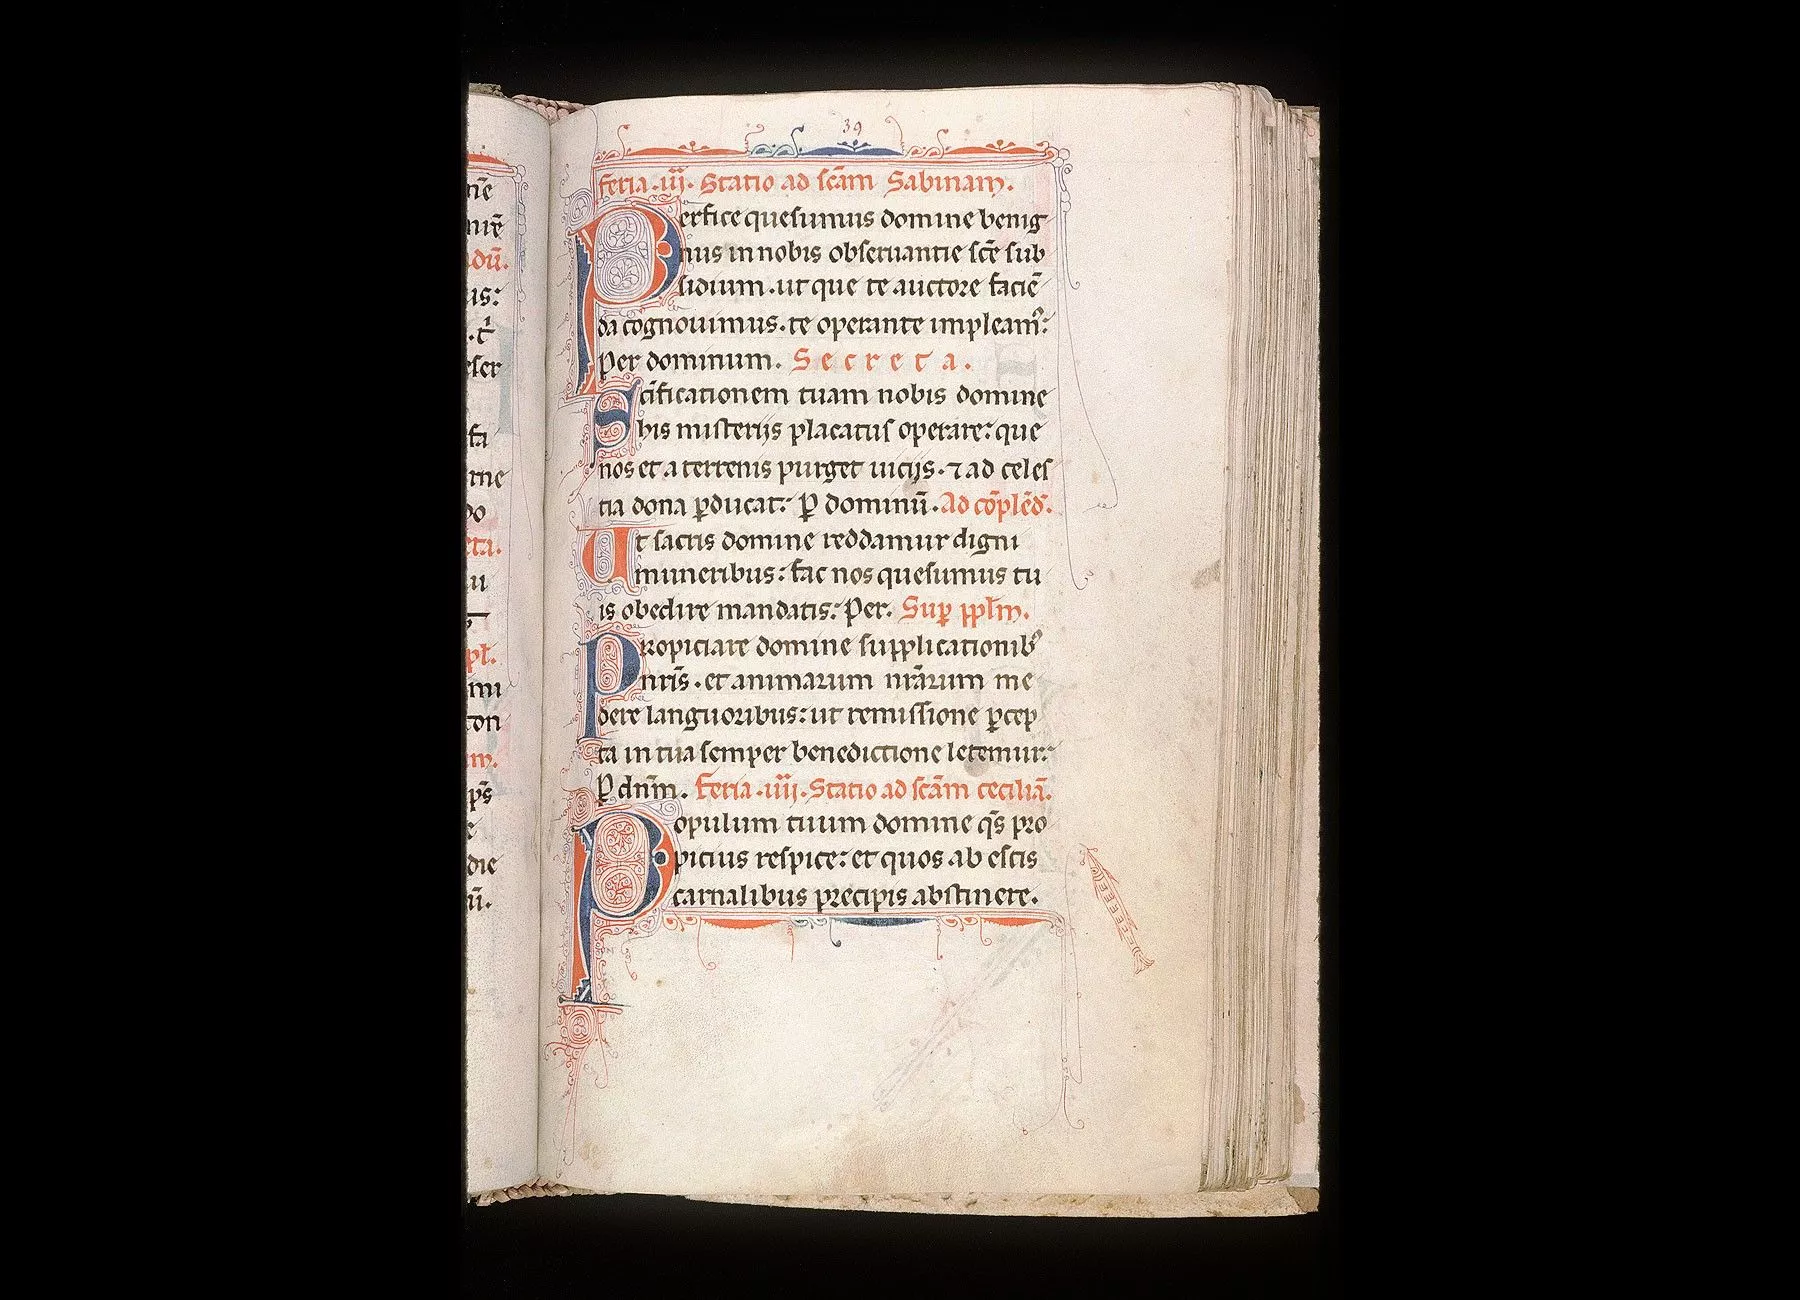 39
feria .iii. Statio ad scām Sabinam.
Perfice quesumus domine benig
nus in nobis obseruantie scē sub
sidium . ut que te auctore faciē
da cognouimus . te operante impleam᷒:
Per dominum. Secreta.
Scīficationem tuam nobis domine
his misterijs placatus operare: que
nos et a terrenis purget uicijs . ⁊ ad celes
tia dona ꝑducat: ꝑ dominū. Ad cōplēd̄.
Ut sacris domine reddamur digni
muneribus: fac nos quesumus tu
is obedire mandatis: Per. Suꝑ ppl̄m.
Propiciare domine supplicationib᷒
nr̄is . et animarum nrārum me
dere languoribus: ut remissione ꝑcep
ta in tua semper benedictione letemur:
ꝑ dn̄m. feria .iiii. Statio ad scām ceciliā.
Populum tuum domine qs̄ pro
picius respice: et quos ab escis
carnalibus precipis abstinere.